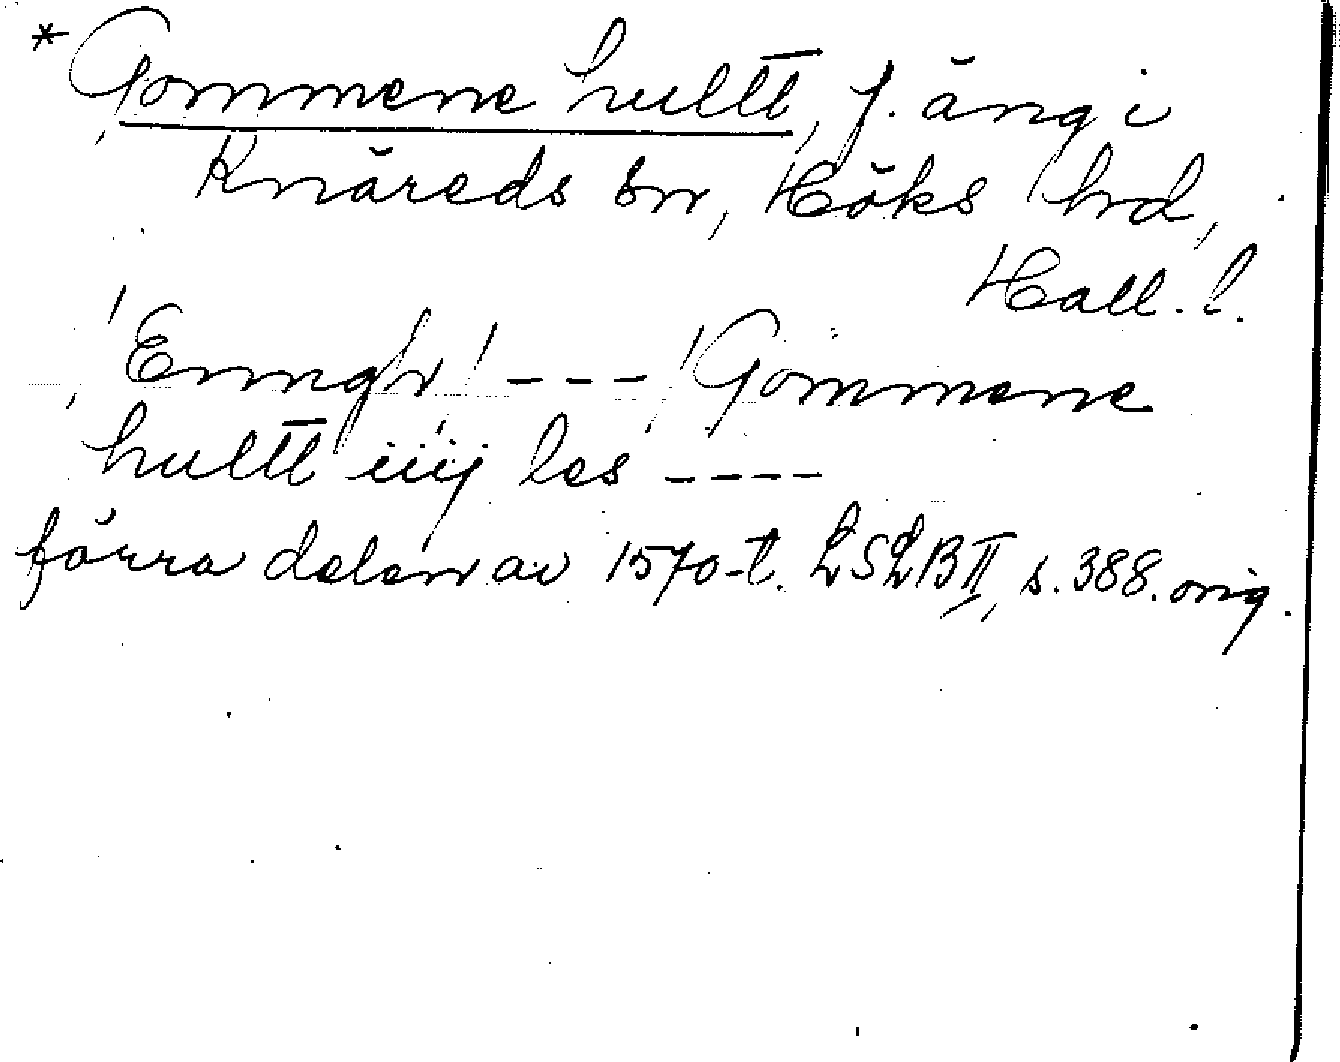 *Gommene hultt, f. äng i
Knäreds sn, Höks hd,
Hall. l.
/Enngh/ - - - /Gommene
hultt iiij les - - - -
förra delen av 1570-t. LSLB II, s. 388. orig.